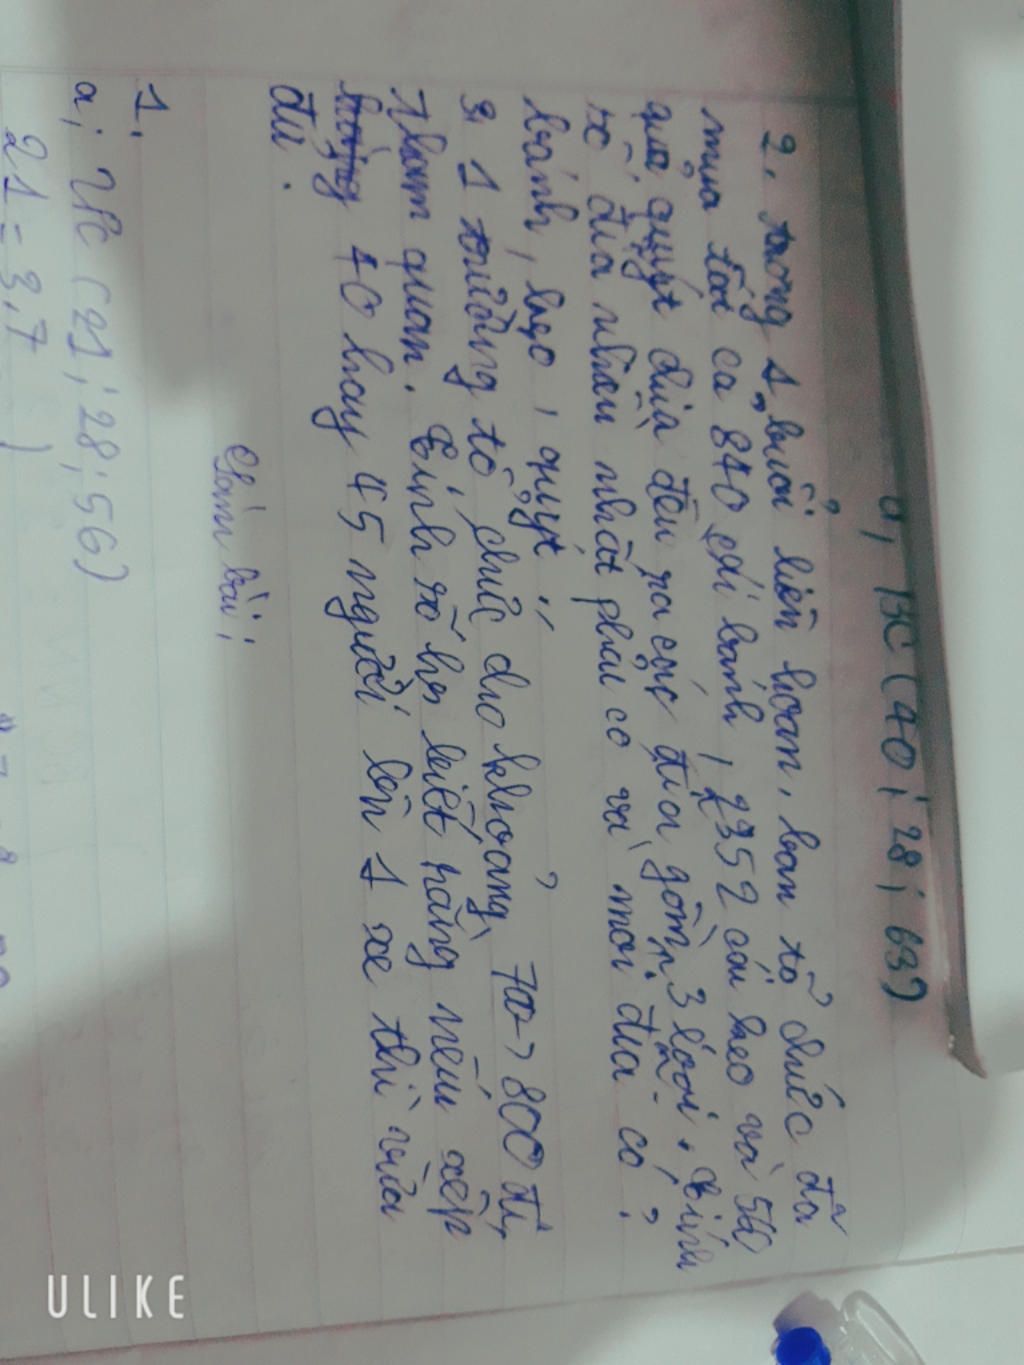 a, BC (40 ; 28 ; 63)
2. trong 1 buổi liên hoan, ban tổ chức đã
mua tất cả 840 cái bánh, 2352 cái kẹo và 560
quả quýt chia đều ra các đĩa gồm 3 loại. tính
số đĩa nhiều nhất phải có và mỗi đĩa có ?
bánh, kẹo, quýt
3, 1 trường tổ chức cho khoảng 700-> 800 đi
tham quan. tính số hs biết rằng nếu xếp
40 hay 45 người lên 1 xe thì vừa
đủ.
Làm bài:
1.
a; ƯC (21 ; 28 ; 56)
21 = 3.7
ULIKE